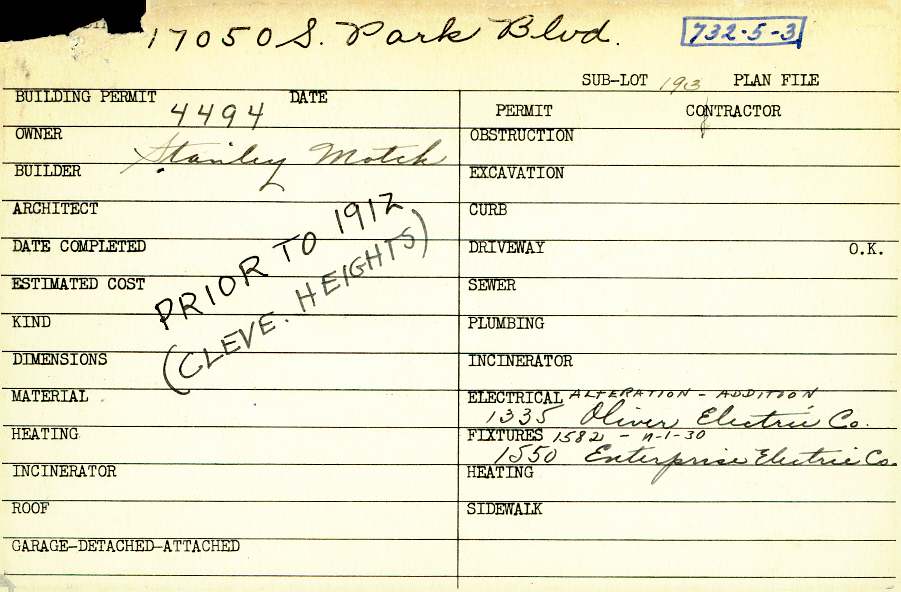 17050 S. Park Blvd. 732-5-3
SUB-LOT 193 PLAN FILE
BUILDING PERMIT 4494 DATE
PERMIT CONTRACTOR
OWNER Stanley Motch
OBSTRUCTION
BUILDER
EXCAVATION
ARCHITECT
CURB
DATE COMPLETED
DRIVEWAY O.K.
ESTIMATED COST
SEWER
PRIOR TO 1912
(CLEVE. HEIGHTS)
KIND
PLUMBING
DIMENSIONS
INCINERATOR
MATERIAL
ELECTRICAL ALTERATION - ADDITION
1335 Oliver Electric Co.
HEATING
FIXTURES 1582 - 11-1-30
1550 Enterprise Electric Co.
INCINERATOR
HEATING
ROOF
SIDEWALK
GARAGE-DETACHED-ATTACHED